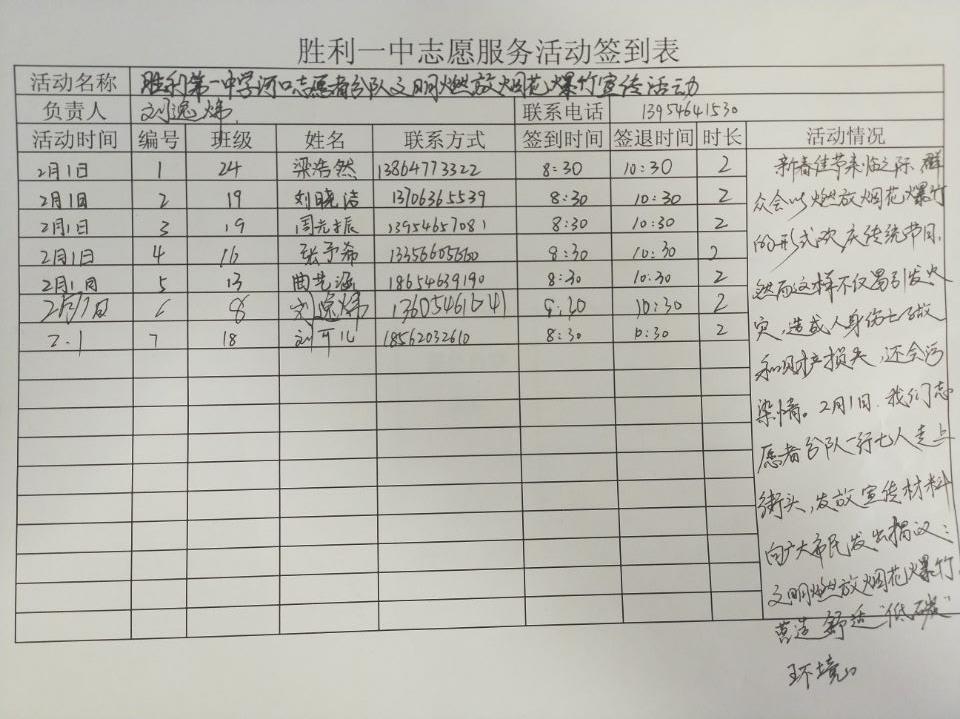 胜利一中志愿服务活动签到表
活动名称 胜利第一中学河口志愿者分队文明燃放烟花爆竹宣传活动
负责人 刘逸炜 联系电话 13954641530
活动时间 编号 班级 姓名 联系方式 签到时间 签退时间 时长 活动情况
2月1日 1 24 梁浩然 13864773322 8:30 10:30 2
2月1日 2 19 刘晓洁 13706365539 8:30 10:30 2
2月1日 3 19 周先振 13954657081 8:30 10:30 2
2月1日 4 16 张予希 8:30 10:30 2
2月1日 5 13 曲艺涵 18654639190 8:30 10:30 2
2月1日 6 8 刘逸炜 13605461641 8:30 10:30 2
2.1 7 18 刘可儿 18562032610 8:30 10:30 2
新春佳节来临之际,群
众会以燃放烟花爆竹
的形式欢庆传统节日,
然而这样不仅易引发火
灾,造成人身伤亡事故
和财产损失,还会污
染情。2月1日,我们志
愿者分队一行七人走上
街头,发放宣传材料
向广大市民发出倡议:
文明燃放烟花爆竹,
营造舒适"低碳"
环境。